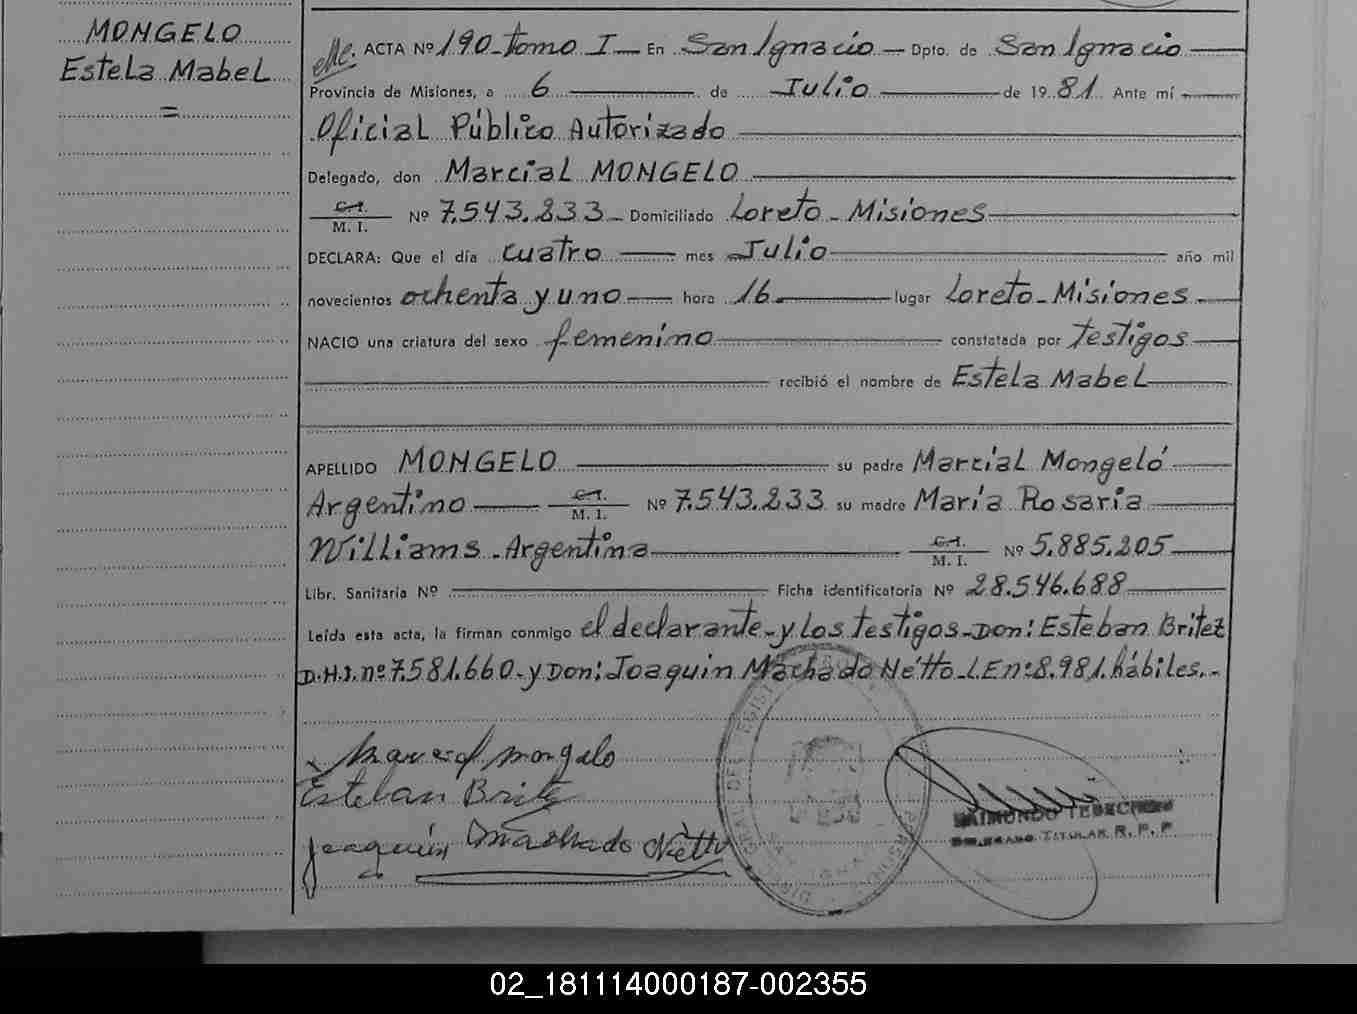 MONGELO
Estela Mabel
=
ACTA Nº 190-tomo I — En San Ignacio — Dpto. de San Ignacio
Provincia de Misiones, a 6 de Julio de 1981 Ante mí
Oficial Público Autorizado
Delegado, don Marcial MONGELO
C.I. M. I. Nº 7.543.233 - Domiciliado Loreto - Misiones
DECLARA: Que el día cuatro mes Julio año mil
novecientos ochenta y uno hora 16 lugar Loreto - Misiones
NACIO una criatura del sexo femenino constatada por testigos
recibió el nombre de Estela Mabel
APELLIDO MONGELO su padre Marcial Mongeló
Argentino C.I. M. I. Nº 7.543.233 su madre María Rosaria
Williams - Argentina C.I. M. I. Nº 5.885.205
Libr. Sanitaria Nº Ficha identificatoria Nº 28.546.688
Leída esta acta, la firman conmigo el declarante - y los testigos - Don: Esteban Britez
D.N.I. nº 7.581.660 - y Don: Joaquin Machado Nétto - L.E nº: 8.981. hábiles.-
Marcial mongelo
Estelan Britez
joaquín Machado Nétto
RAIMUNDO TEDESCHINI
DELEGADO TITULAR R. P. P.
02_181114000187-002355